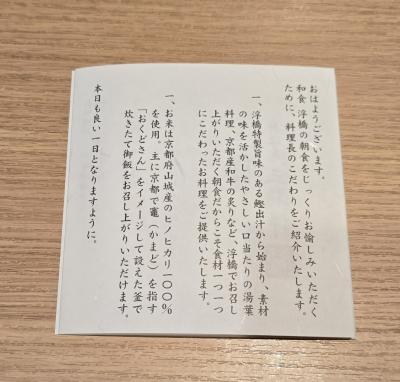 おはようございます。
和食 浮橋の朝食をじっくりお愉しみいただく
ために、料理長のこだわりをご紹介いたします。
一、浮橋特製旨味のある鰹出汁から始まり、素材
の味を活かしたやさしい口当たりの湯葉
料理、京都産和牛の炙りなど、浮橋でお召し
上がりいただく朝食だからこそ食材一つ一つ
にこだわったお料理をご提供いたします。
一、お米は京都府山城産のヒノヒカリ一〇〇%
を使用。主に京都で竈(かまど)を指す
「おくどさん」をイメージして設えた釜で
炊きたて御飯をお召し上がりいただけます。
本日も良い一日となりますように。